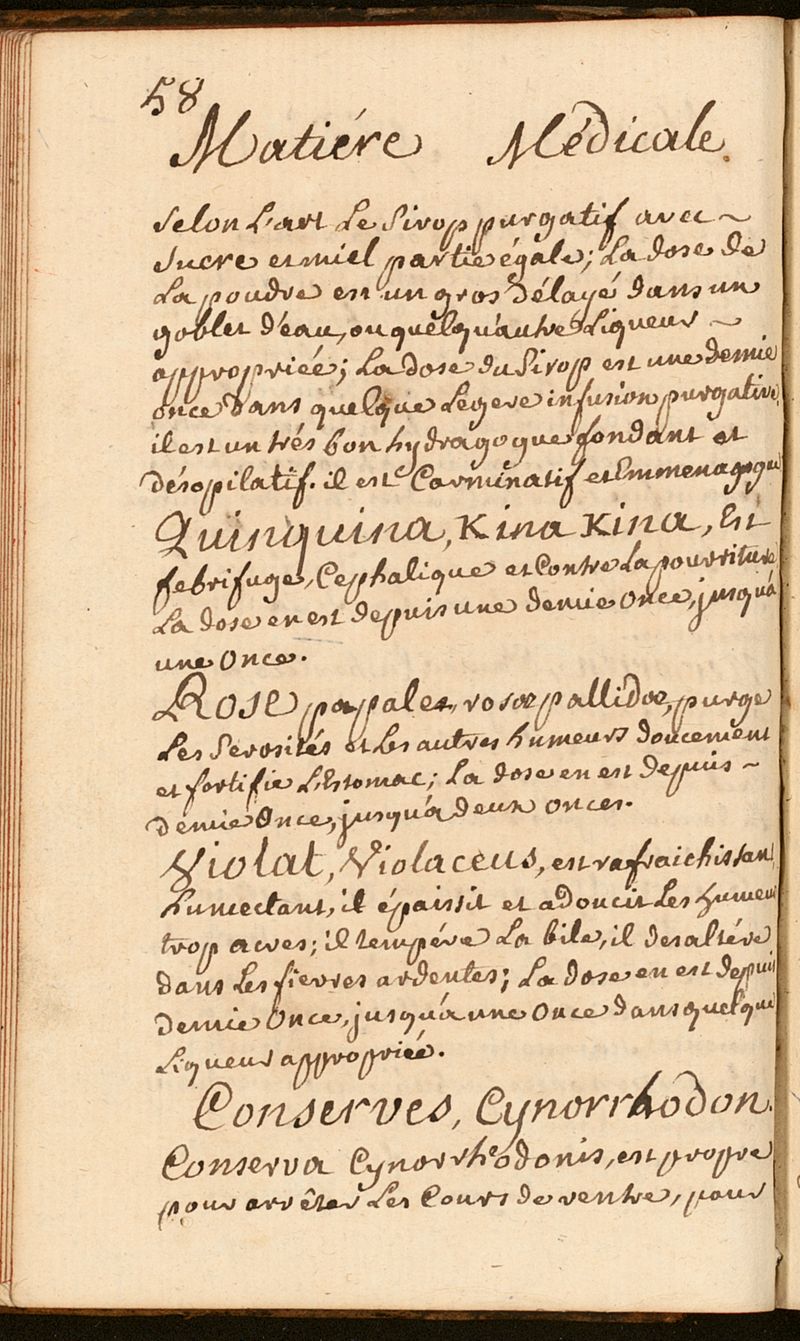 58
Matiére Médicale.
selon L'art Le Sirop purgatif avec ~
sucre et miel partie égale; La dose de
La poudre est un gros délayé dans un
goblet d'eau, ou quelqu'autre Liqueur ~
appropriée; La dose du Sirop est une demie
once dans quelque Legere infusion purgative,
il est un trés bon hydragogue fondant et
désopilatif. il est Carminatif et Emmenagogue
Quinquina, Kina Kina, Est
febrifuge, Cephalique et Contre La pourriture
La dose en est depuis une demie Once, jusqu'à
une Once.
Rose papales, rosæ pallidæ, purge
Les Serosités et Les autres humeurs doucement
et fortifie L'Estomac; La dose en est depuis ~
demie Once, jusqu'a deux onces.
Violat, Violaceus, est rafraichissant,
humectant, il épaissit et adoucit Les humeurs
trop acres; il tempére La bile, il desaltére
dans Les fievres ardentes; La dose en est depuis
demie Once, jusqu'a une Once dans quelque
Liqueur appropriée.
Conserves, Cynorrhodon.
Conserva Cynorrhodonis, est propre
pour arrêter Les Cours de ventre, pour